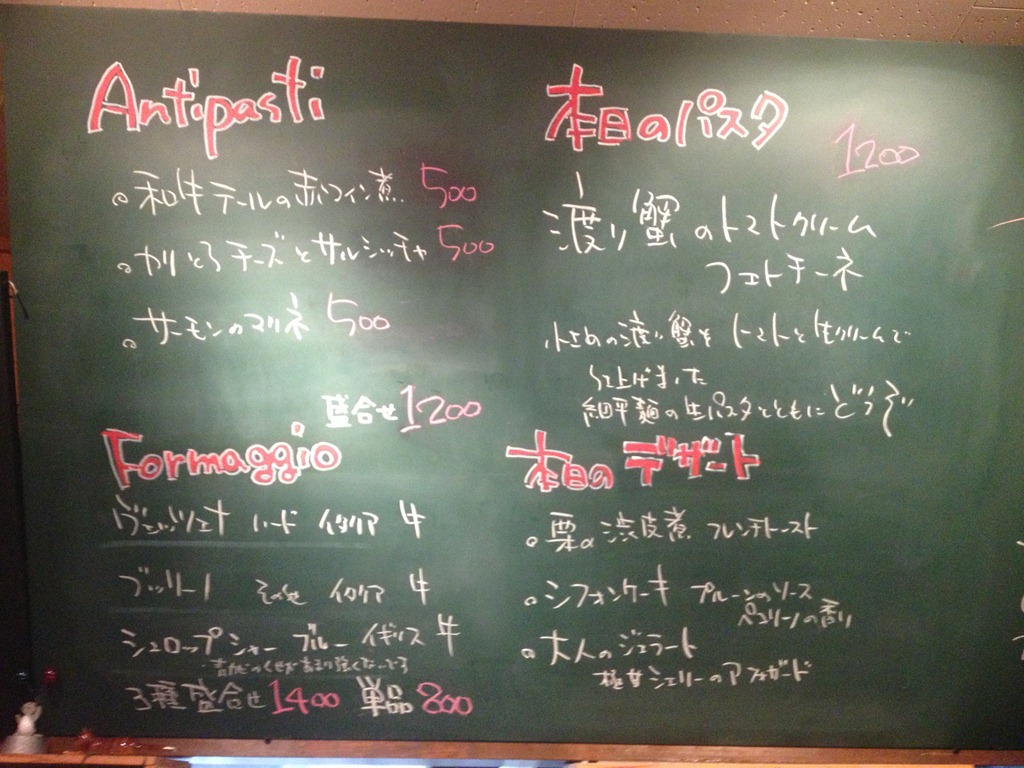 Antipasti
和牛テールの赤ワイン煮 500
かりとろチーズとサルシッチャ 500
サーモンのマリネ 500
盛合せ 1200
Formaggio
ヴェッツェナ ハード イタリア 牛
ブッリーノ その他 イタリア 牛
シュロップシャーブルー イギリス 牛
3種盛合せ 1400 単品 800
本日のパスタ
1200
渡り蟹のトマトクリーム
フェトチーネ
小さめの渡り蟹をトマトと生クリームで
仕上げました
細平麺の生パスタとともにどうぞ
本日のデザート
栗の渋皮煮 フレンチトースト
シフォンケーキ プルーンのソース
の香り
大人のジェラート
極甘シェリーのアフォガード